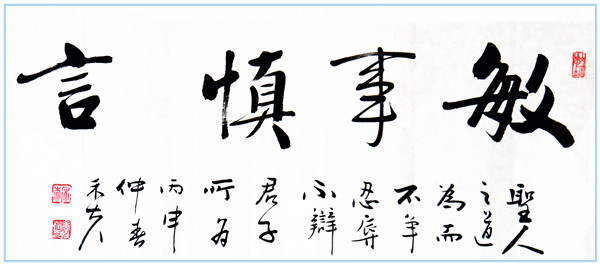 敏事慎言
聖人
之道
為而
不争
忍辱
不辯
君子
所为
丙申
仲春